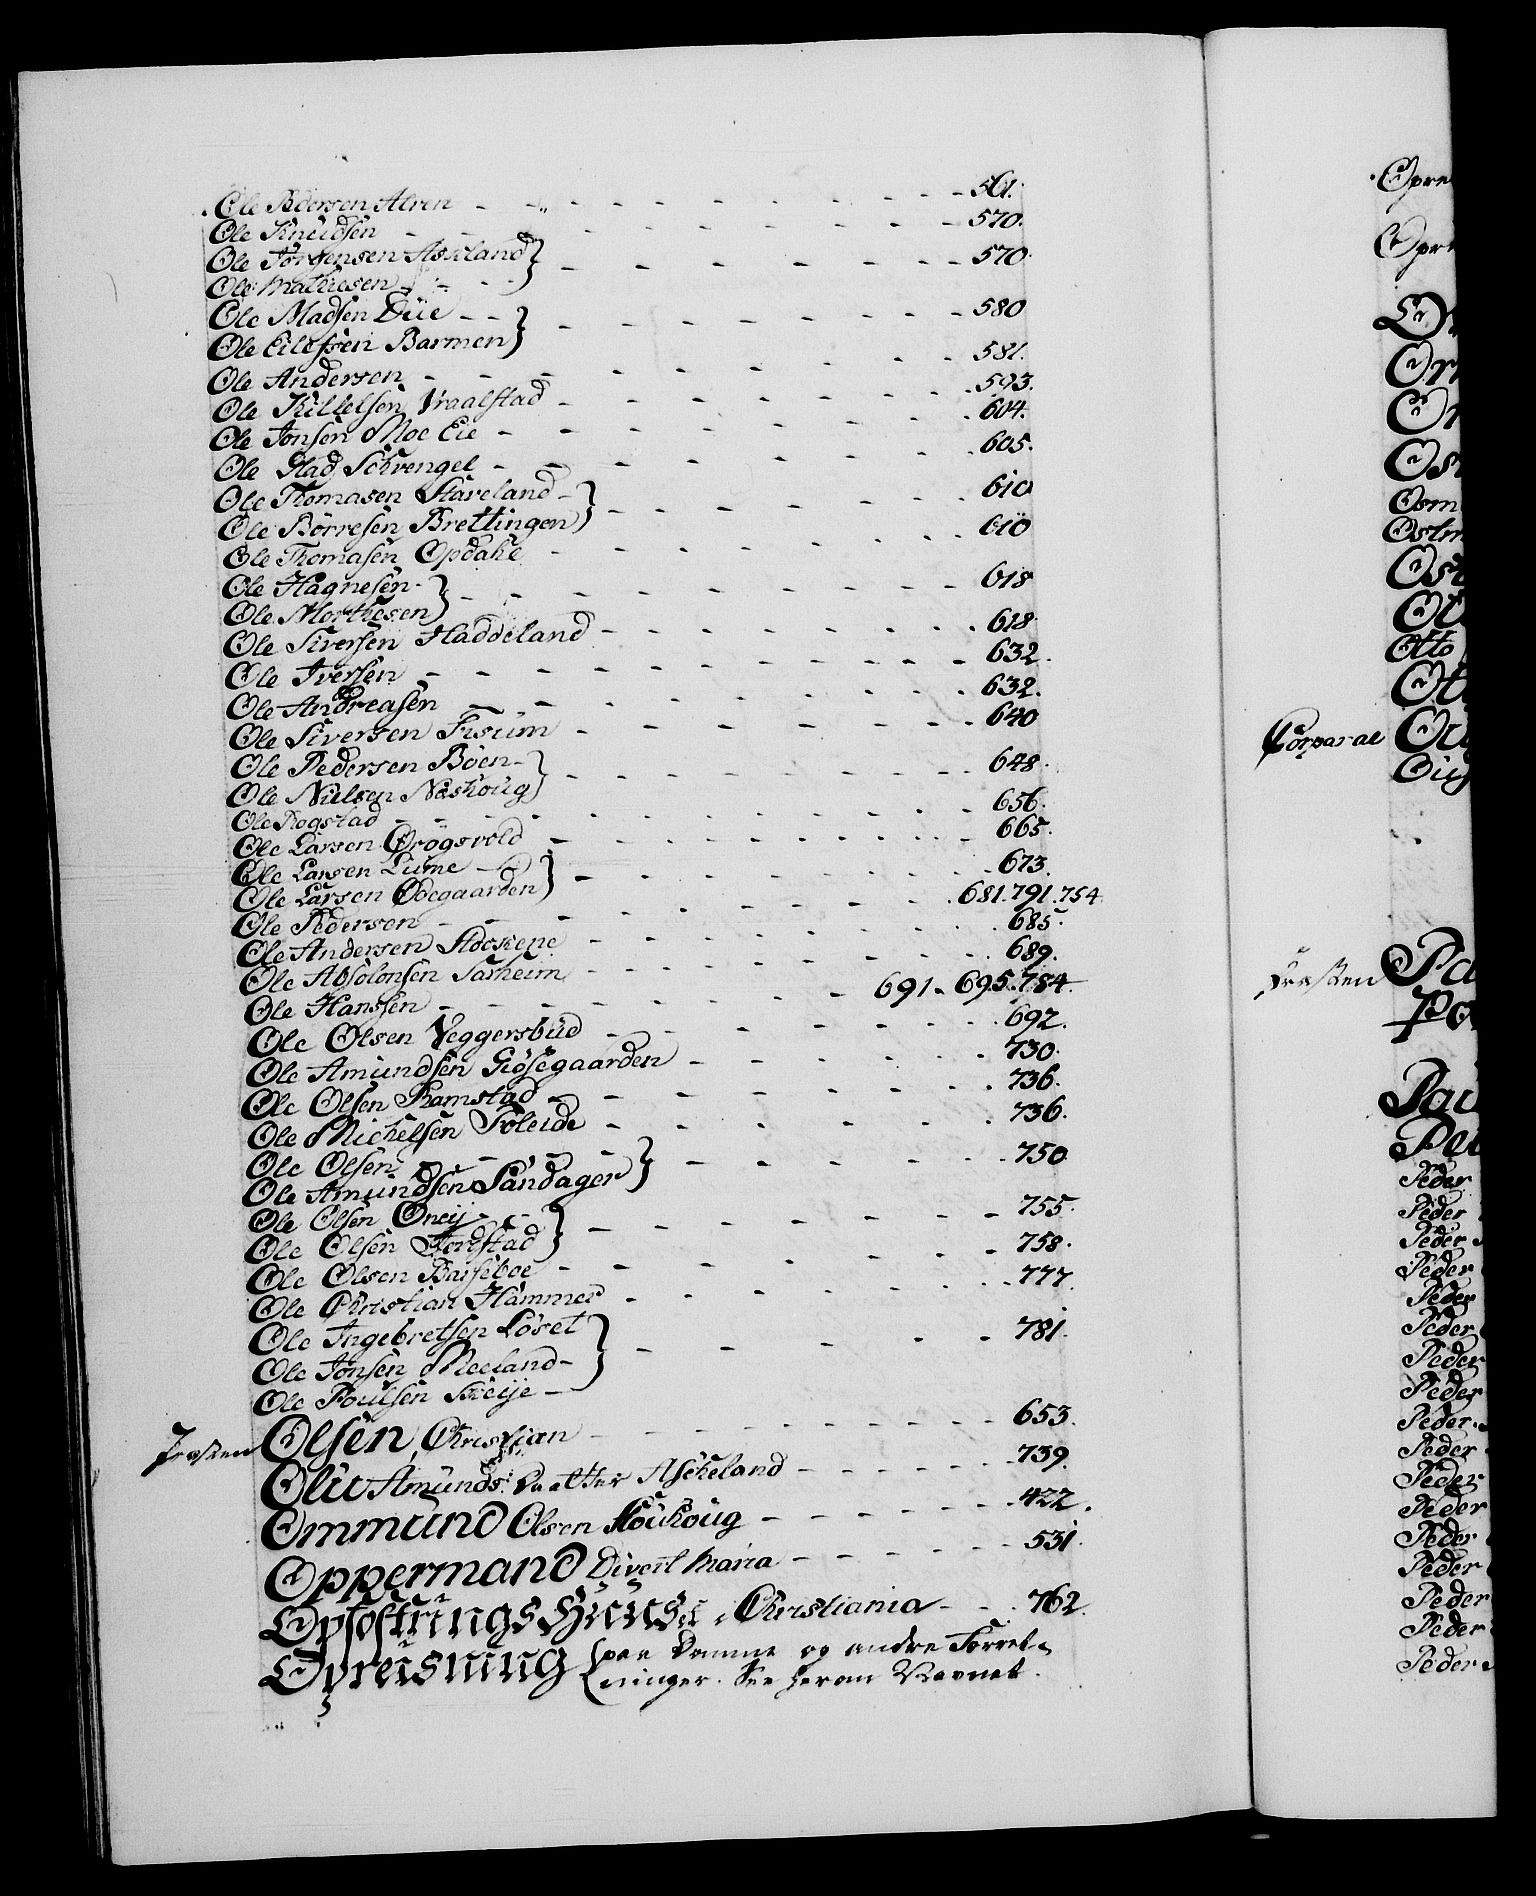 Ole Pedersen Alren - - - - - - - - 561.
Ole Knudsen - - - - - - - - 570.
Ole Jørgensen Askeland } - - - - - - - 570.
Ole Mathiesen - - -
Ole Madsen Düe - - } - - - - - - - 580
Ole Eilefsen Barmen
Ole Andersen - - - - - - - - 581.
Ole Killelsen Vraalstad - - - - - - 593.
Ole Jonsen Moe Eie - - - - - - - 604.
Ole Glad Schrengel - - - - - - - 605.
Ole Thomasen Stareland - } - - - - - - 610
Ole Børresen Brettingen
Ole Thomasen Opdahl - - - - - - - 610
Ole Hagnesen - } - - - - - - - 618
Ole Morthesen
Ole Siversen Haddeland - - - - - - - 618.
Ole Iversen - - - - - - - - 632.
Ole Andreasen - - - - - - - 632.
Ole Siversen Fisum - - - - - - 640
Ole Pedersen Böen - } - - - - - - - 648.
Ole Nielsen Næskoug
Ole Rogstad - - - - - - - - 656.
Ole Larsen Drögsvold - - - - - - - 665.
Ole Larsen Lume - - } - - - - - - 673.
Ole Larsen Ödegaarden
Ole Pedersen - - - - - - - 681.791.754
Ole Andersen - - - - - - 685.
Ole Absolonsen Sarheim - - - - - - 689.
Ole Hanssen - - - - - - 691. 695.784.
Ole Olsen Veggersbüd - - - - - - 692.
Ole Amundsen Giösegaarden - - - - - 730.
Ole Olsen Ramstad - - - - - - 736.
Ole Michelsen Foleide - - - - - 736.
Ole Olsen - - - - } - - - - - 750
Ole Amundsen Sandager
Ole Olsen Oneij - - } - - - - - - 755.
Ole Olsen
Ole Olsen Basseboe - - - - - - 758.
Ole Christian Hammer - - - - - 777.
Ole Ingebretsen Löset } - - - - - 781.
Ole Jonsen Meeland -
Ole Poulsen Skeije -
Presten Olsen, Christian - - - - - - 653.
Olie Amunds: Daatter Askeland - - - - 739.
Ommund Olsen Houkoug - - - - - 422.
Oppermand Divert Maria - - - - - 531.
Opfostrings Huuset i Christiania - - - 762.
Opreisning {paa Domme og andre Forret-
ninger. See herom Navnet.
Opre
Opre
Or
Or
Os
Osm
Ostm
Ot
Otto
Ot
Corporal Ou
Presten Pa
Pa
Pau
Ped
Peder
Peder
Peder
Peder
Peder
Peder
Peder
Peder
Peder
Peder
Peder
Peder
Peder
Peder
Peder
Peder
Peder